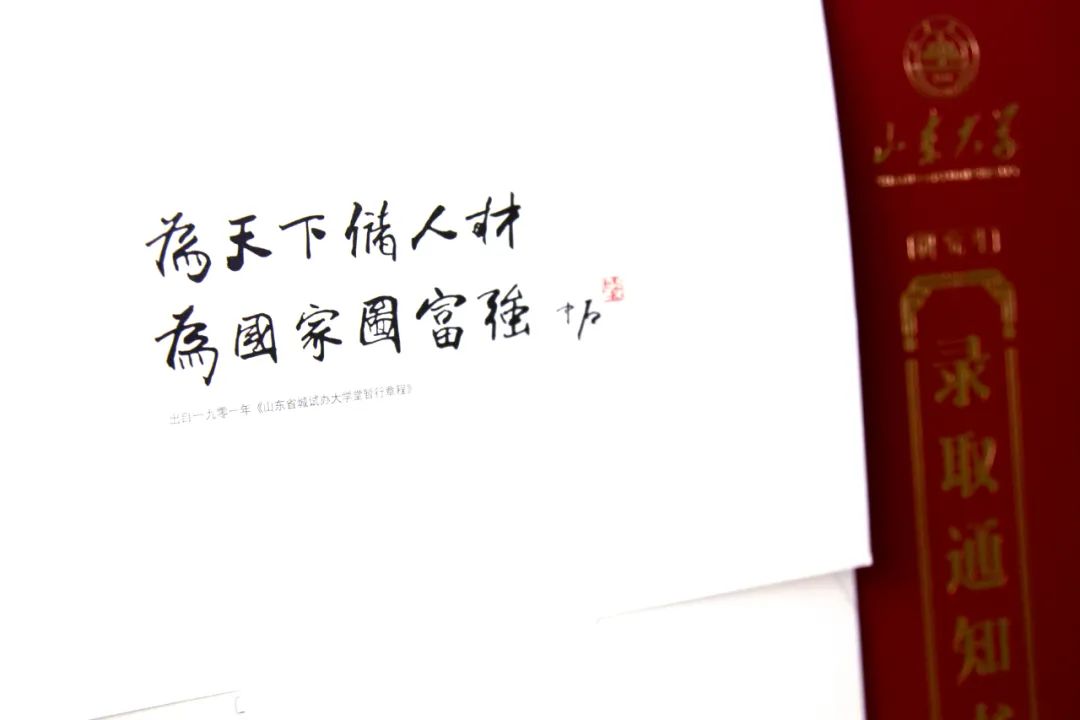 為天下儲人材
為國家圖富強
出自一九零一年《山东省城试办大学堂暂行章程》
山東大学
研究生
录取通知书